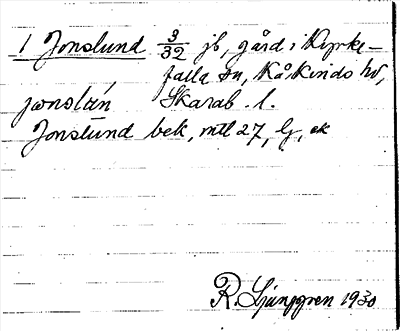 1 Jonslund 3/32 jb, gård i Kyrke-
falla sn, Kåkinds hd,
jonslún Skarab. l.
Jonslund bek, mtl 27, lj, ek
R. Ljunggren 1930